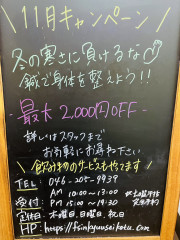 11月キャンペーン
冬の寒さに負けるな
鍼で身体を整えよう!!
-最大 2,000円OFF-
詳しくはスタッフまで
お気軽にお尋ね下さい
飲みもののサービスも行ってます
TEL: 046-205-9939
受付: AM 10:00〜13:00
PM 15:00〜
定休日: 木曜日,日曜日,祝日
HP: https://